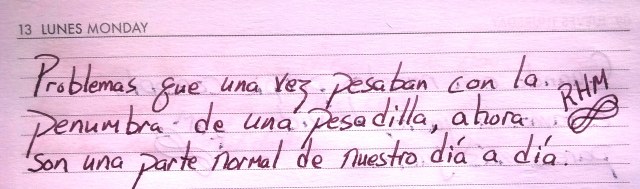 13 LUNES MONDAY
Problemas que una vez pesaban con la
penumbra de una pesadilla, ahora
son una parte normal de nuestro diá a día.
RHM